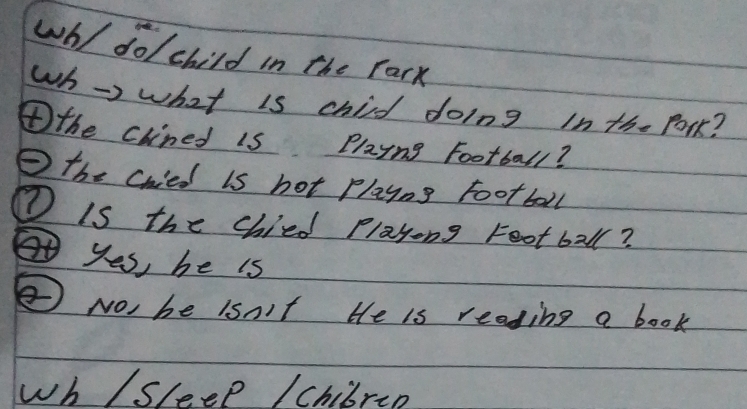 wh/ do/ child in the Park
wh → what is chid doing in the Park?
+ the chined is Playng Football?
- the chied is not Playng Football
? Is the chied Playeng Football?
?+ yes, he is
?- No, he isn't He is reading a book
wh / Sleep / Chibren